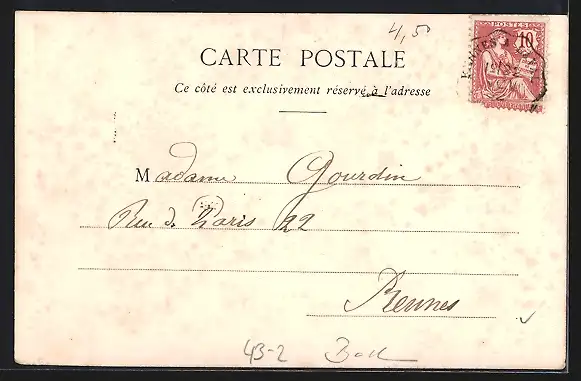 4,50
POSTES
10
CARTE POSTALE
Ce côté est exclusivement réservé à l'adresse
Madame Gourdin
Rue de Paris 22
Rennes
43-2